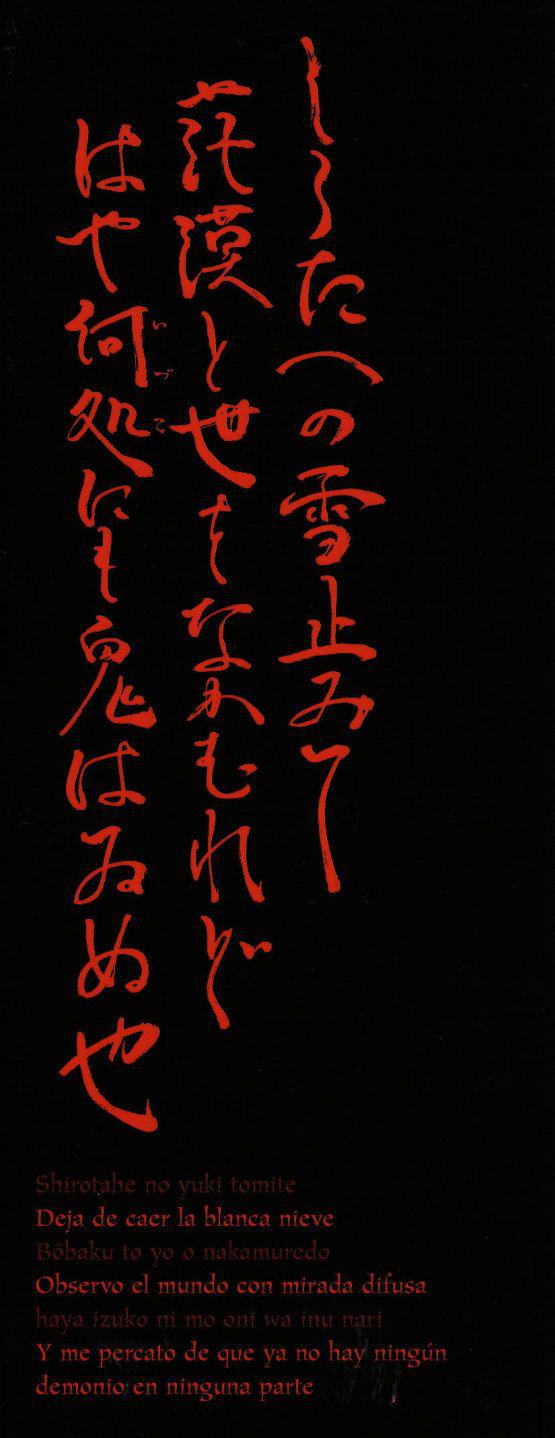 しろたへの雪止みて
茫漠と世をなかむれど
はや何処にも鬼はゐぬ也
いづこ
Shirotahe no yuki tomite
Deja de caer la blanca nieve
Bôbaku to yo o nakamuredo
Observo el mundo con mirada difusa
haya izuko ni mo oni wa inu nari
Y me percato de que ya no hay ningún
demonio en ninguna parte